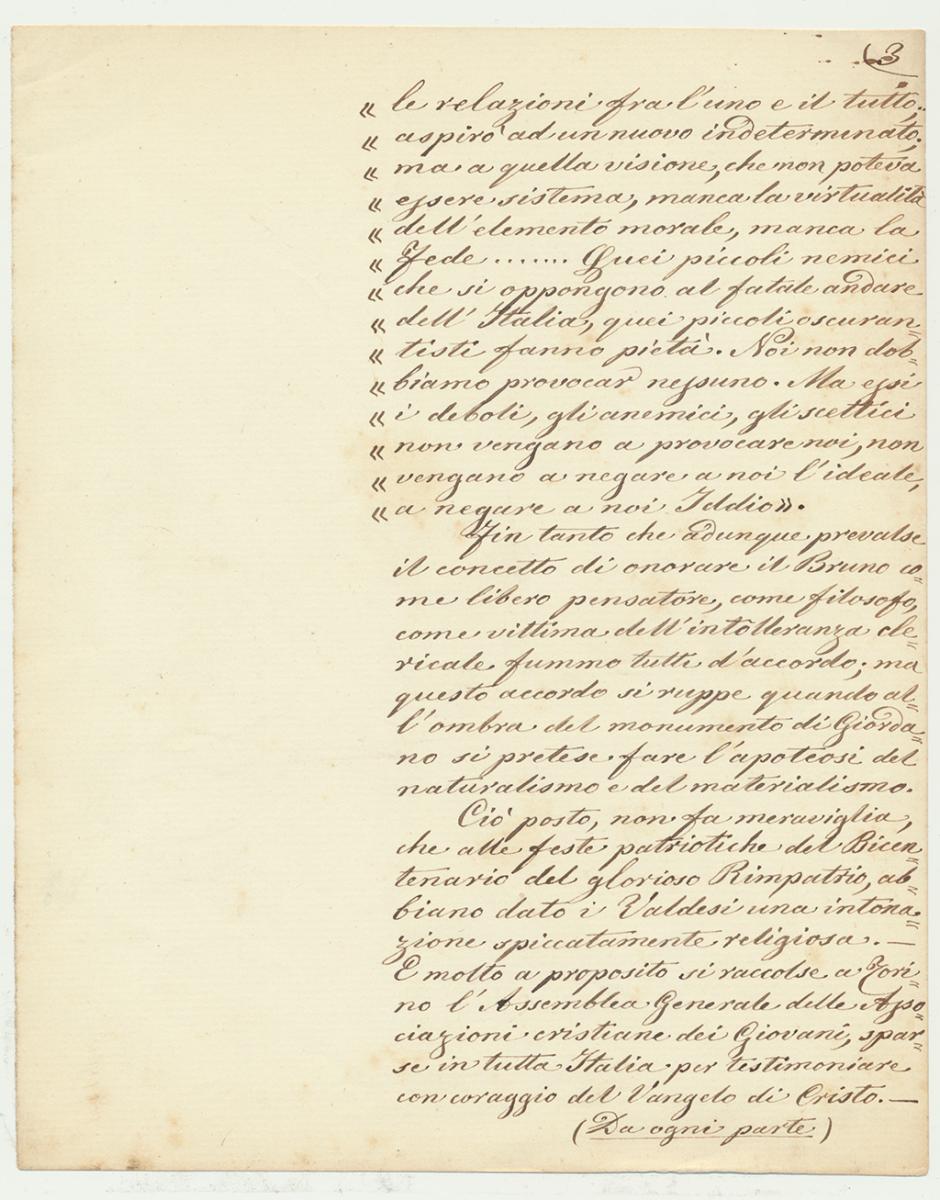 3
« le relazioni fra l'uno e il tutto,
« aspirò ad un nuovo indeterminato;
« ma a quella visione, che non poteva
« essere sistema, manca la virtualità
« dell'elemento morale, manca la
« Fede ....... Quei piccoli nemici
« che si oppongono al fatale andare
« dell'Italia, quei piccoli oscuran=
« tisti fanno pietà. Noi non dob=
« biamo provocar nessuno. Ma essi
« i deboli, gli anemici, gli scettici
« non vengano a provocare noi, non
« vengano a negare a noi l'ideale,
« a negare a noi Iddio».
Fin tanto che adunque prevalse
il concetto di onorare il Bruno co=
me libero pensatore, come filosofo,
come vittima dell'intolleranza cle=
ricale fummo tutti d'accordo; ma
questo accordo si ruppe quando al=
l'ombra del monumento di Giorda=
no si pretese fare l'apoteosi del
naturalismo e del materialismo.
Ciò posto, non fa meraviglia,
che alle feste patriotiche del Bicen=
tenario del glorioso Rimpatrio, ab=
biano dato i Valdesi una intona=
zione spiccatamente religiosa. —
E molto a proposito si raccolse a Tori=
no l'Assemblea Generale delle Asso=
ciazioni cristiane dei Giovani, spar=
se in tutta Italia per testimoniare
con coraggio del Vangelo di Cristo. —
(Da ogni parte)